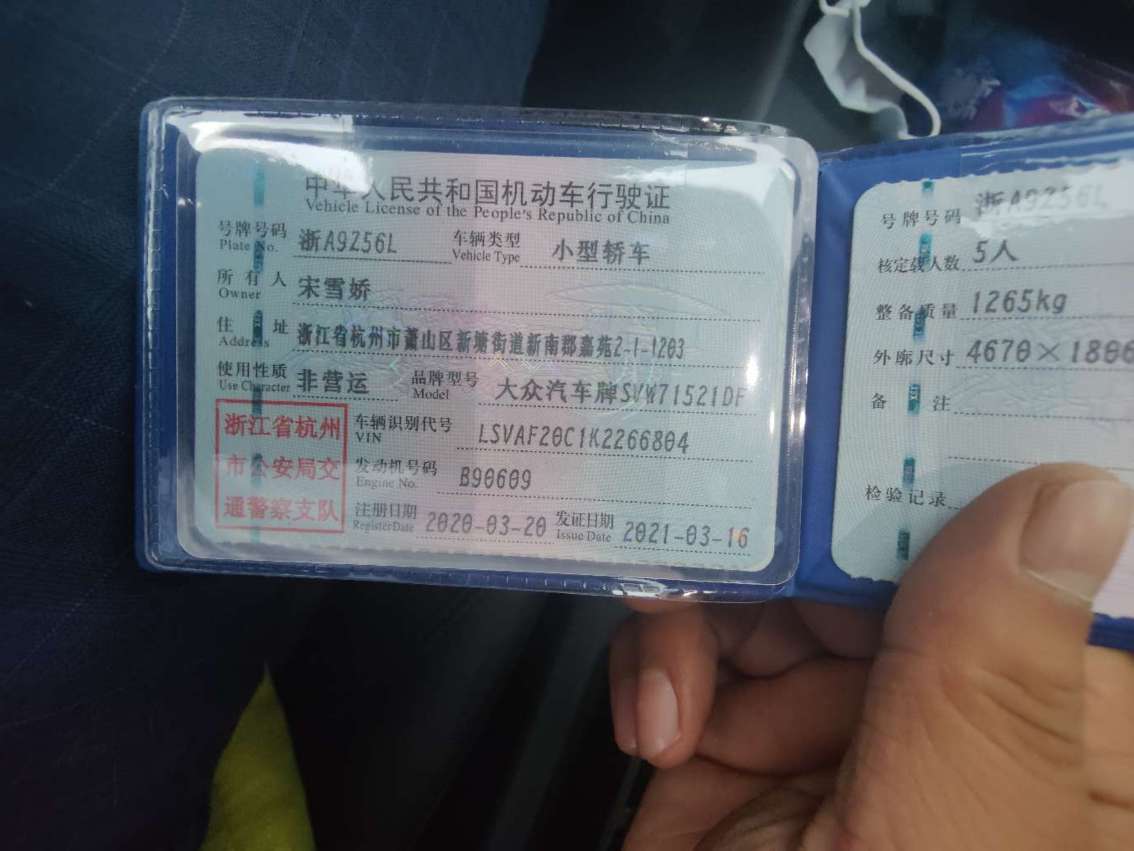 中华人民共和国机动车行驶证
Vehicle License of the People's Republic of China
号牌号码 浙A9Z56L 车辆类型 小型轿车
Plate No. Vehicle Type
所有人 宋雪娇
Owner
住址 浙江省杭州市萧山区新塘街道新南郡嘉苑2-1-1203
Address
使用性质 非营运 品牌型号 大众汽车牌SVW71521DF
Use Character Model
浙江省杭州
市公安局交
通警察支队
车辆识别代号 LSVAF20C1K2266804
VIN
发动机号码 B90609
Engine No.
注册日期 2020-03-20 发证日期 2021-03-16
Register Date Issue Date
号牌号码 浙A9Z56L
核定载人数 5人
整备质量 1265kg
外廓尺寸 4670×1806
备注
检验记录